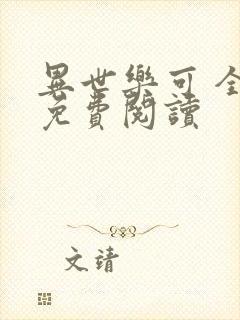 異世樂可全
免費閱讀
文靖